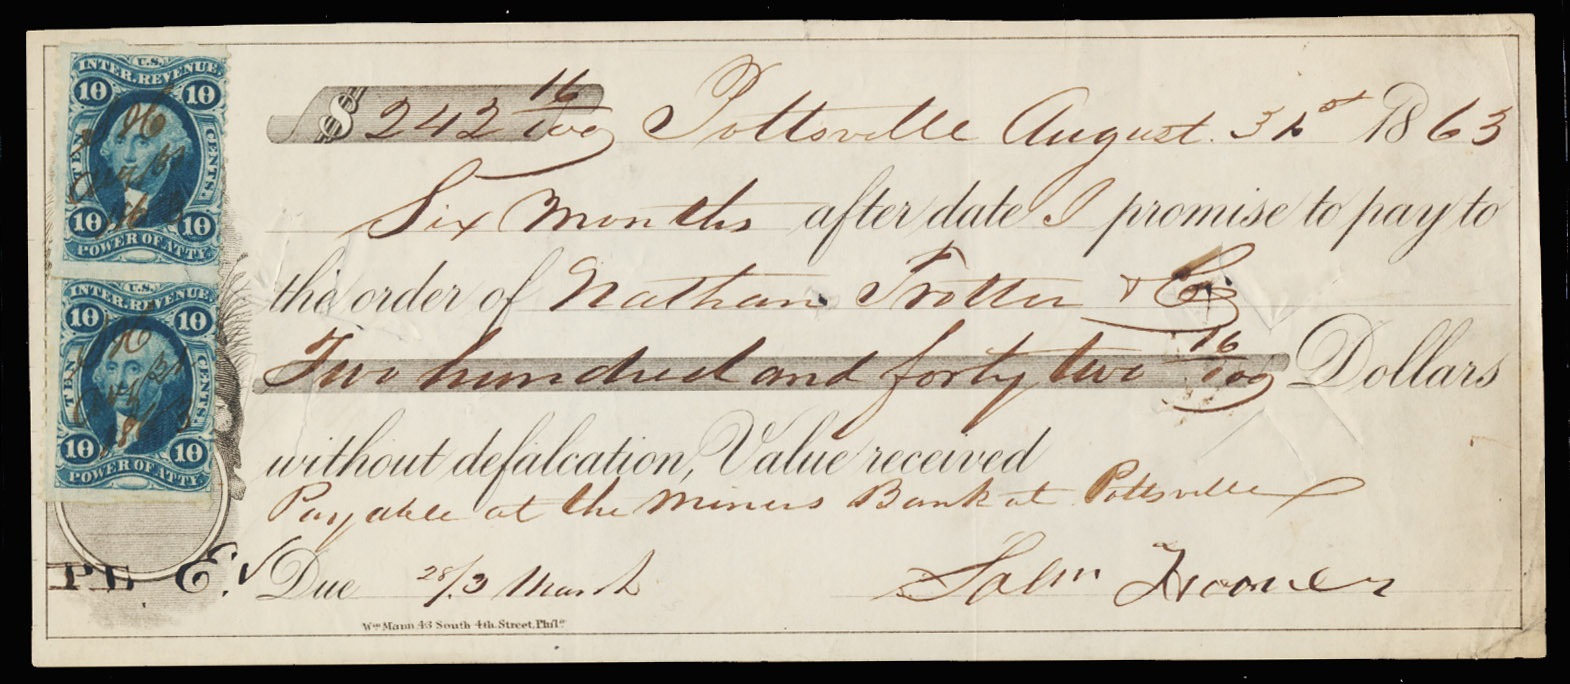 U.S.
INTER. REVENUE.
10 10
TEN CENTS.
10 10
POWER OF ATTY.
U.S.
INTER. REVENUE.
10 10
TEN CENTS.
10 10
POWER OF ATTY.
$ 242 16/100 Pottsville August 31st 1863
Six Months after date I promise to pay to
the order of Nathan Trotter & Co
Two hundred and forty two 16/100 Dollars
without defalcation, Value received
Payable at the Miners Bank at Pottsville
Due 28/3 March Solm Hoover
Wm Mann 43 South 4th. Street, Phila.